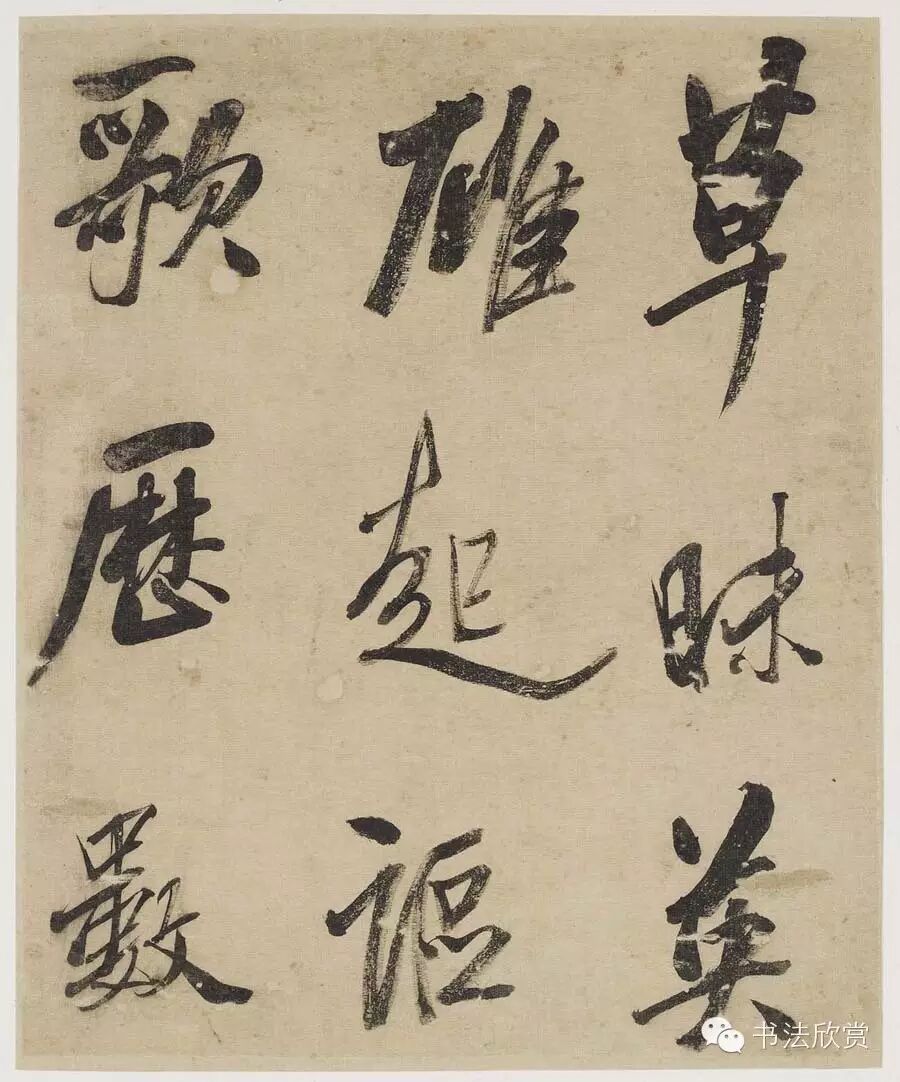 草昧英
雄起謳
歌歷數
书法欣赏